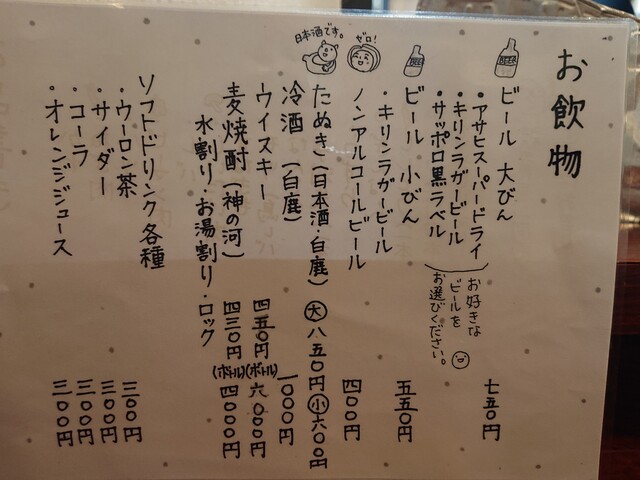 お飲物
ビール 大びん 七五〇円
・アサヒスーパードライ
・キリンラガービール
・サッポロ黒ラベル
お好きな
ビールを
お選びください。
BEER
ビール 小びん 五五〇円
・キリンラガービール
BEER
ノンアルコールビール 四〇〇円
ゼロ!
たぬき(日本酒・白鹿) 大 八五〇円 小 六〇〇円
日本酒です。
冷酒 (白鹿) 一〇〇〇円
ウイスキー 四五〇円 (ボトル) 六〇〇〇円
麦焼酎(神の河) 四三〇円 (ボトル) 四〇〇〇円
水割り・お湯割り・ロック
ソフトドリンク各種
・ウーロン茶 三〇〇円
・サイダー 三〇〇円
・コーラ 三〇〇円
・オレンジジュース 三〇〇円